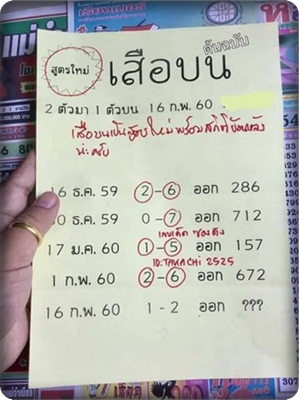 แม่
ต้นฉบับ
สูตรใหม่
เสือบน
2 ตัวมา 1 ตัวบน 16 ก.พ. 60
เสือบนเป็นสูตรใหม่พร้อมสถิติย้อนหลัง
นะครับ
16 ธ.ค. 59 2-6 ออก 286
30 ธ.ค. 59 0-7 ออก 712
เลขเด็ด ซองดัง
17 ม.ค. 60 1-5 ออก 157
ID:TAKACHI 2525
1 ก.พ. 60 2-6 ออก 672
16 ก.พ. 60 1-2 ออก ???